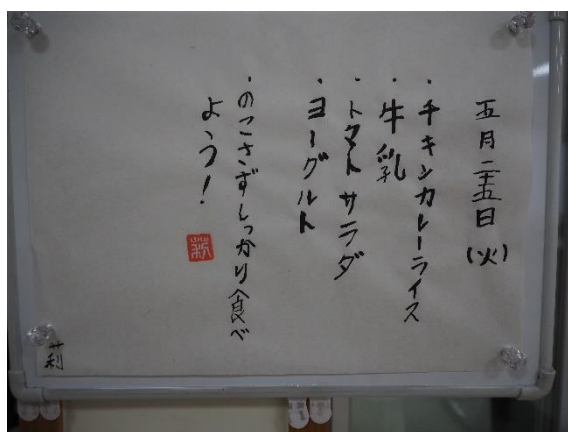 五月二十五日（火）
・チキンカレーライス
・牛乳
・トマトサラダ
・ヨーグルト
・のこさずしっかり食べ
よう！